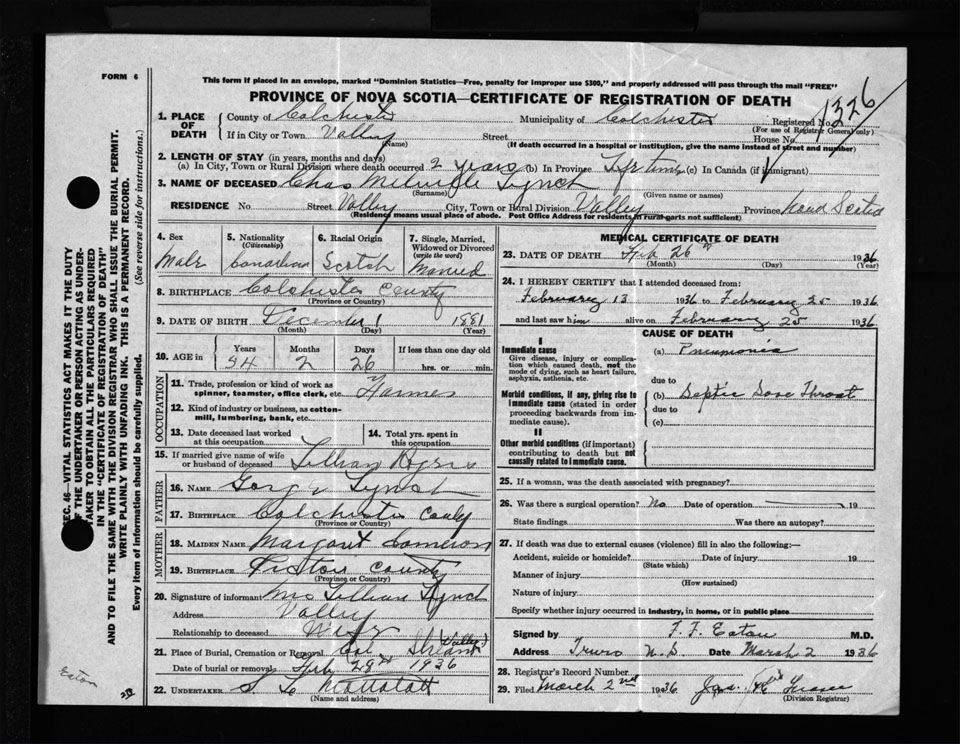 FORM 6
This form if placed in an envelope, marked "Dominion Statistics—Free, penalty for improper use $300," and properly addressed will pass through the mail "FREE"
PROVINCE OF NOVA SCOTIA—CERTIFICATE OF REGISTRATION OF DEATH
1326
1. PLACE OF DEATH County of Colchester Municipality of Colchester Registered No.
(For use of Registrar General only)
If in City or Town Valley Street House No.
(Name) (If death occurred in a hospital or institution, give the name instead of street and number)
2. LENGTH OF STAY (in years, months and days)
(a) In City, Town or Rural Division where death occurred 2 years (b) In Province Life time (c) In Canada (if immigrant)
3. NAME OF DECEASED Chas Melville Lynch
(Surname) (Given name or names)
RESIDENCE No. Street Valley City, Town or Rural Division Valley Province Nova Scotia
(Residence means usual place of abode. Post Office Address for residents in rural parts not sufficient)
4. Sex Male
5. Nationality (Citizenship) Canadian
6. Racial Origin Scotch
7. Single, Married, Widowed or Divorced (write the word) Married
8. BIRTHPLACE Colchester County
(Province or Country)
9. DATE OF BIRTH December 1 1881
(Month) (Day) (Year)
10. AGE in Years Months Days If less than one day old
54 2 26 hrs. or min.
OCCUPATION
11. Trade, profession or kind of work as spinner, teamster, office clerk, etc. Farmer
12. Kind of industry or business, as cotton-mill, lumbering, bank, etc.
13. Date deceased last worked at this occupation
14. Total yrs. spent in this occupation
15. If married give name of wife or husband of deceased Lillian Rogers
FATHER
16. NAME George Lynch
17. BIRTHPLACE Colchester County
(Province or Country)
MOTHER
18. MAIDEN NAME Margaret Cameron
19. BIRTHPLACE Pictou County
(Province or Country)
20. Signature of informant Mrs Lillian Lynch
Address Valley
Relationship to deceased Wife
21. Place of Burial, Cremation or Removal (Valley)
Date of burial or removal Feb 28th 1936
22. UNDERTAKER
(Name and address)
MEDICAL CERTIFICATE OF DEATH
23. DATE OF DEATH Feb 26th 1936
(Month) (Day) (Year)
24. I HEREBY CERTIFY that I attended deceased from:
February 13 1936 to February 25 1936
and last saw him alive on February 25 1936
CAUSE OF DEATH
I
Immediate cause
Give disease, injury or complication which caused death, not the mode of dying, such as heart failure, asphyxia, asthenia, etc.
(a) Pneumonia
due to
Morbid conditions, if any, giving rise to immediate cause (stated in order proceeding backwards from immediate cause).
(b) Septic Sore Throat
due to
(c)
II
Other morbid conditions (if important) contributing to death but not causally related to immediate cause.
25. If a woman, was the death associated with pregnancy?
26. Was there a surgical operation? No Date of operation 19
State findings Was there an autopsy?
27. If death was due to external causes (violence) fill in also the following:—
Accident, suicide or homicide? Date of injury 19
(State which)
Manner of injury
(How sustained)
Nature of injury
Specify whether injury occurred in industry, in home, or in public place
Signed by F. F. Eaton M.D.
Address Truro N.S. Date March 2 1936
28. Registrar's Record Number
29. Filed March 2nd 1936
(Division Registrar)
SEC. 46—VITAL STATISTICS ACT MAKES IT THE DUTY
OF THE UNDERTAKER OR PERSON ACTING AS UNDER-
TAKER TO OBTAIN ALL THE PARTICULARS REQUIRED
IN THE "CERTIFICATE OF REGISTRATION OF DEATH"
AND TO FILE THE SAME WITH THE DIVISION REGISTRAR WHO SHALL ISSUE THE BURIAL PERMIT.
WRITE PLAINLY WITH UNFADING INK. THIS IS A PERMANENT RECORD.
Every item of information should be carefully supplied. (See reverse side for instructions.)
Eaton